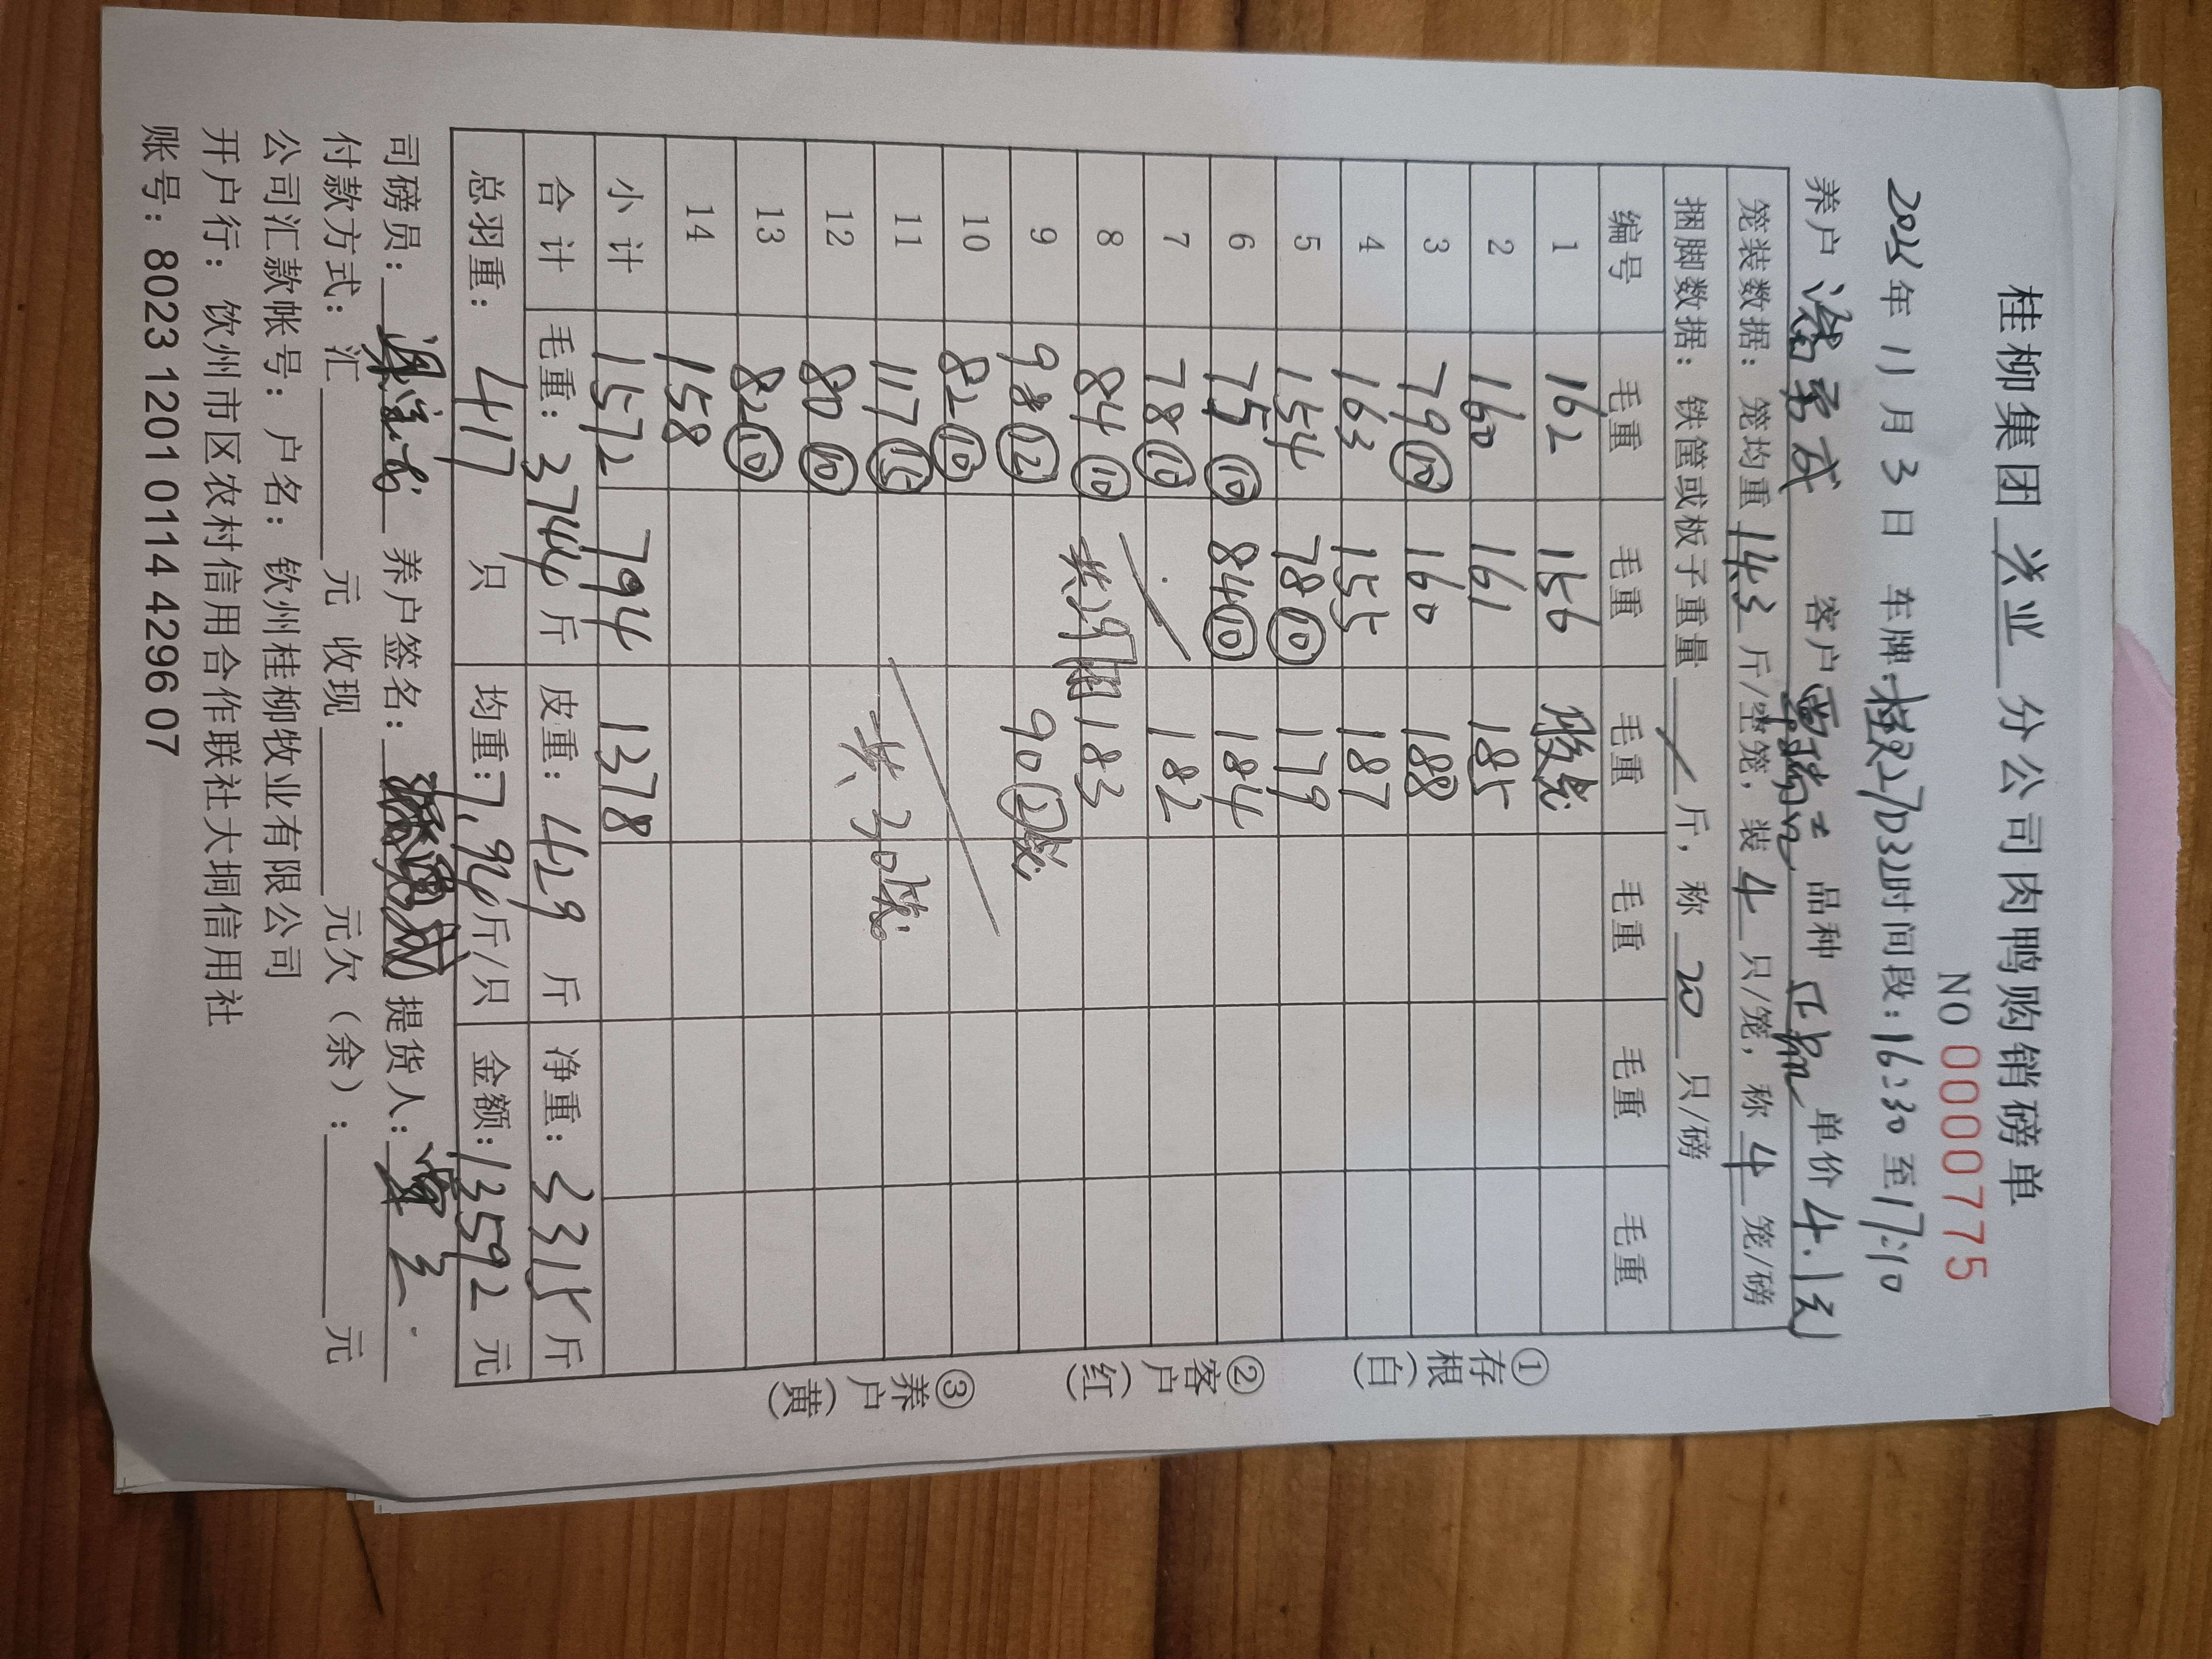 桂柳集团 兴业 分公司肉鸭购销磅单
NO 0000775
年 11 月 3 日 车牌: 桂R27D32 时间段: 16:30 至 17:10
养户 客户 品种 单价 4.1元
笼装数据: 笼均重 14.3 斤/空笼, 装 4 只/笼, 称 4 笼/磅
捆脚数据: 铁筐或板子重量 / 斤, 称 20 只/磅
编号 毛重 毛重 毛重 毛重 毛重 毛重
1 162 156
2 160 161 185
3 79⑩ 160 188
4 163 155 187
5 154 78⑩ 179
6 75⑩ 84⑩ 184
7 78⑩ 182
8 84⑩ 183
9 98⑫ 90
10 82⑩
11 117⑮
12 80⑩
13 82⑩
14 158
小计 1572 794 1378
合计 毛重: 3744 斤 皮重: 429 斤 净重: 3315 斤
总羽重: 417 只 均重: 7.94 斤/只 金额: 13592 元
①存根(白) ②客户(红) ③养户(黄)
司磅员: 养户签名: 提货人:
付款方式: 汇 元 收现 元欠(余): 元
公司汇款帐号: 户名: 钦州桂柳牧业有限公司
开户行: 饮州市区农村信用合作联社大垌信用社
账号: 8023 1201 0114 4296 07